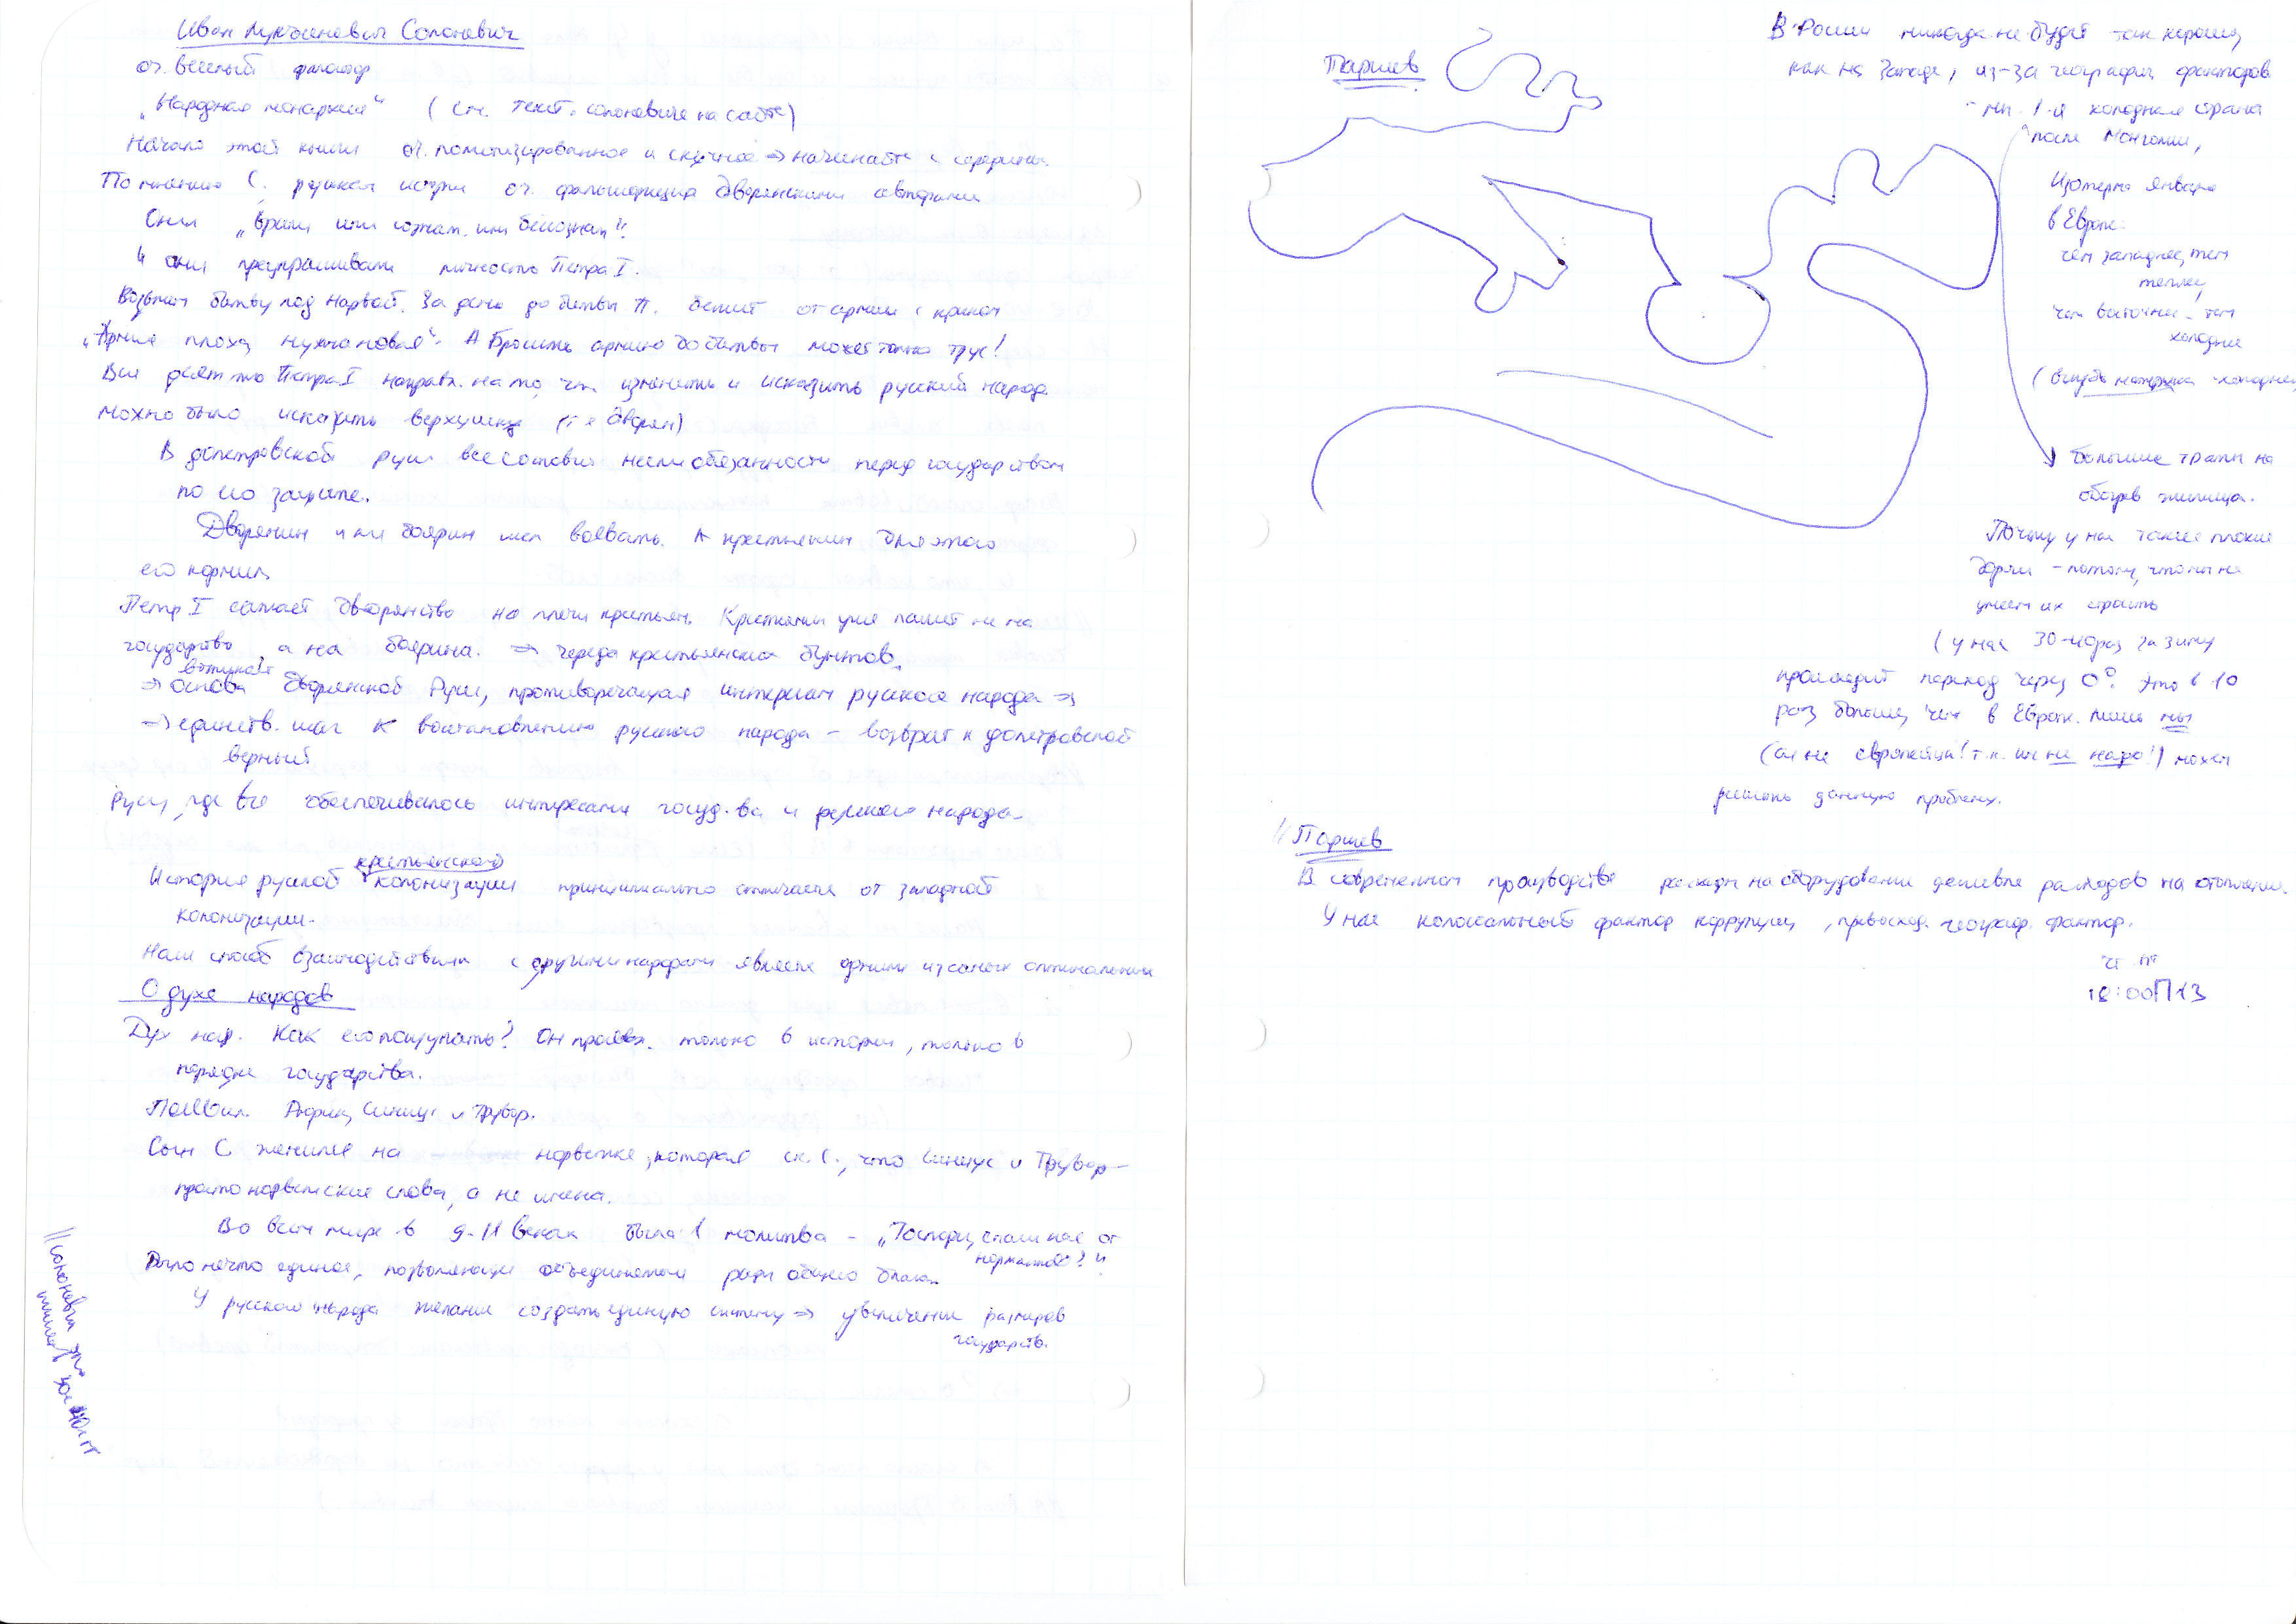 Иван Лукьянович Солоневич
оч. веселый философ
„Народная монархия“ (см. текст. солоневича на сайте)
Начало этой книги оч. политизированное и скучное ⇒ начинайте с середины.
По мнению С. русская истри оч. фальшифицир дворянскими авторами
Они „врали или сознат. или бессознат“.
↳ они приукрашивали личность Петра I.
Возьмем битву под Нарвой. За день до битвы П. бежит от армии с криком
„Армия плоха, нужна новая“. А бросить армию до битвы может только трус!
Вся деят-ть Петра I направл. на то, чт. изменить и исказить русский народ
можно было исказить верхушку (т е дворян)
В допетровской руси все сословия несли обязанности перед государством
по его защите.
Дворянин или боярин шел воевать. А крестьянин для этого
его кормил.
Петр I сажает дворянство на плечи крестьян. Крестьянин уже пашет не на
государство, а на боярина. ⇒ череда крестьянских бунтов.
возникает
⇒ основа дворянской Руси, противоречащая интересам русского народа ⇒
⇒ единств. шаг к восстановлению русского народа – возврат к допетровской
верный
Руси, где все обеспечивалось интересами госуд-ва и русского народа.
крестьянской
История русской колонизации принципиально отличается от западной
колонизации.
Наш способ взаимодействия с другими народами является одним из самых оптимальных
О духе народов
Дух нар. Как его пощупать? Он проявл. только в истории, только в
порядке государства.
Появил. Рюрик, Синеус и Трувор.
Сын С. женился на норвежке, которая ск. С., что Синеус и Трувор –
просто норвежские слова, а не имена.
Во всем мире в 9-11 веках была 1 молитва – „Господи, спаси нас от
норманнов!“
Было нечто единое, позволяющее объединяться ради общего блага.
У русского народа желание создать единую систему ⇒ увеличение размеров
государств.
// Солоневич это
пишет в
Паршев
В России никогда не будет так хорошо,
как на Западе, из-за географич факторов
– мы 1-я холодная страна
после Монголии,
Изотерма января
в Европе:
чем западнее, тем
теплее,
чем восточнее – тем
холоднее
(вглубь материка – холоднее
большие траты на
обогрев жилища.
Почему у нас такие плохие
дороги – потому, что мы не
умеем их строить
(у нас 30-40 раз за зиму
происходит переход через 0°. Это в 10
раз больше, чем в Европе. Лишь мы
(а не европейцы! т.к. им не надо!) можем
решить данную проблему.
// Паршев
В современном производстве расходы на оборудование дешевле расходов на отопление.
У нас колосальный фактор коррупции, превосход. географ. фактор.
чт пт
18:00 П13